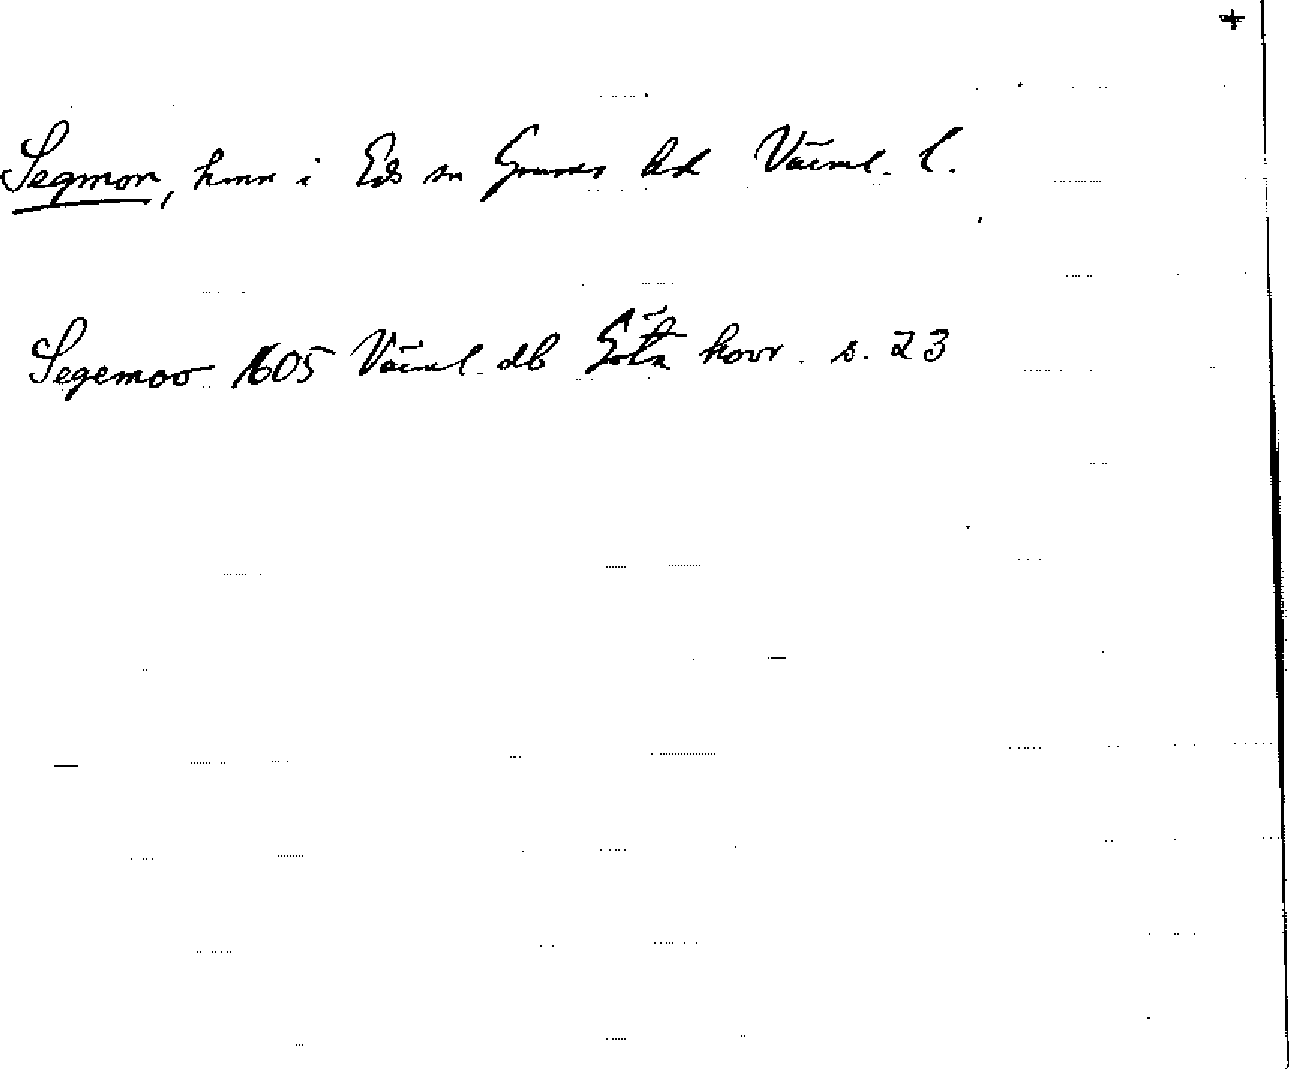 +
Segmon, hmn i Eds sn Grums hd Värml. l.
Segemoo 1605 Värml. db Göta hovr. s. 23